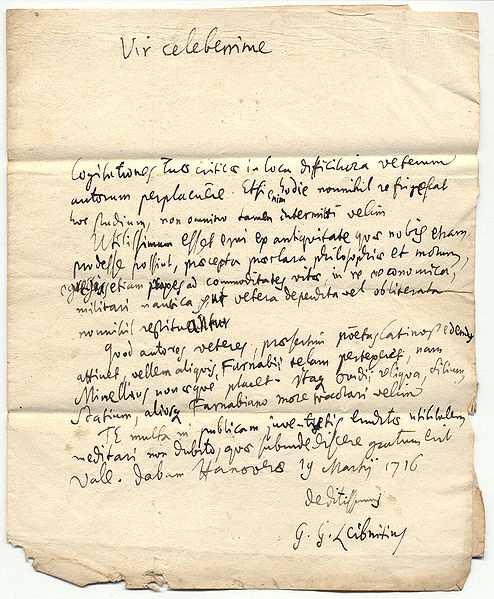 Vir celeberrime
Cogitationes Tuas criticas in loca difficiliora veterum
autorum perplacuêre. Etsi enim hodie nonnihil refrigescat
hoc studium, non omnino tamen intermitti velim
Utilissimum esset erui ex antiquitate quae nobis etiam
prodesse possint, praecepta praeclara philosophis et morum,
etiam ad commoditates vitae in re oeconomica,
militari nautica, vetera deperdita vel obliterata
nonnihil
Quod autores veteres, praesertim poëtas Latinos edendos
attinet, vellem aliquis Farnabii telam pertexeret, nam
Minellius non aeque placet. Itaque Ovidii reliqua, Silium,
Statium, aliosque Farnabiano more tractari velim
TE multa in publicam juventutis eruditae utilitatem
meditari non dubito, quae subinde discere gratum erit
Vale. dabam Hanoverae 19 Martij 1716
deditissimus
G. G. Leibnitius